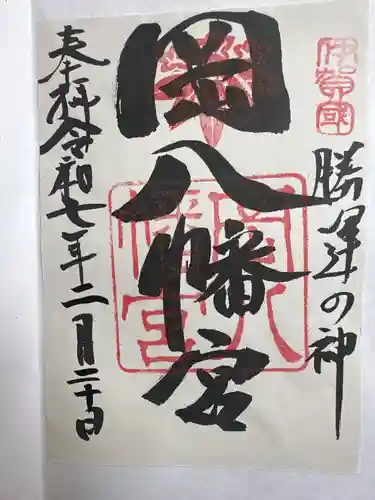 伊賀國
勝運の神
岡八幡宮
岡八幡宮
奉拝令和七年二月二十日